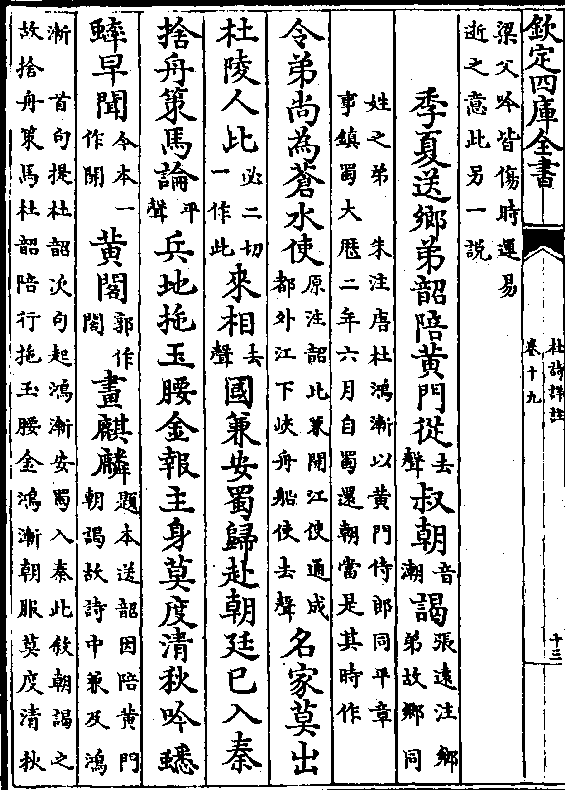 欽定四庫全書 杜詩詳註 卷十九 十三
梁父吟皆傷時運易
逝之意此另一說
季夏送鄉弟韶陪黃門從去聲叔朝音潮謁張遠注鄉弟故鄉同
姓之弟 朱注唐杜鴻漸以黃門侍郎同平章
事鎮蜀大厯二年六月自蜀還朝當是其時作
令弟尚為蒼水使原注韶比兼開江使通成都外江下峽舟船使去聲名家莫出
杜陵人此必二切一作此來相去聲國兼安蜀歸赴朝廷已入秦
捨舟策馬論平聲兵地拖玉腰金報主身莫度清秋吟蟋
蟀早聞今本一作開黃閣郭作閤畫麒麟題本送韶因陪黃門朝謁故詩中兼及鴻
漸 首句提杜韶次句起鴻漸安蜀入秦此敘朝謁之
故捨舟策馬杜韶陪行拖玉腰金鴻漸朝服莫度清秋